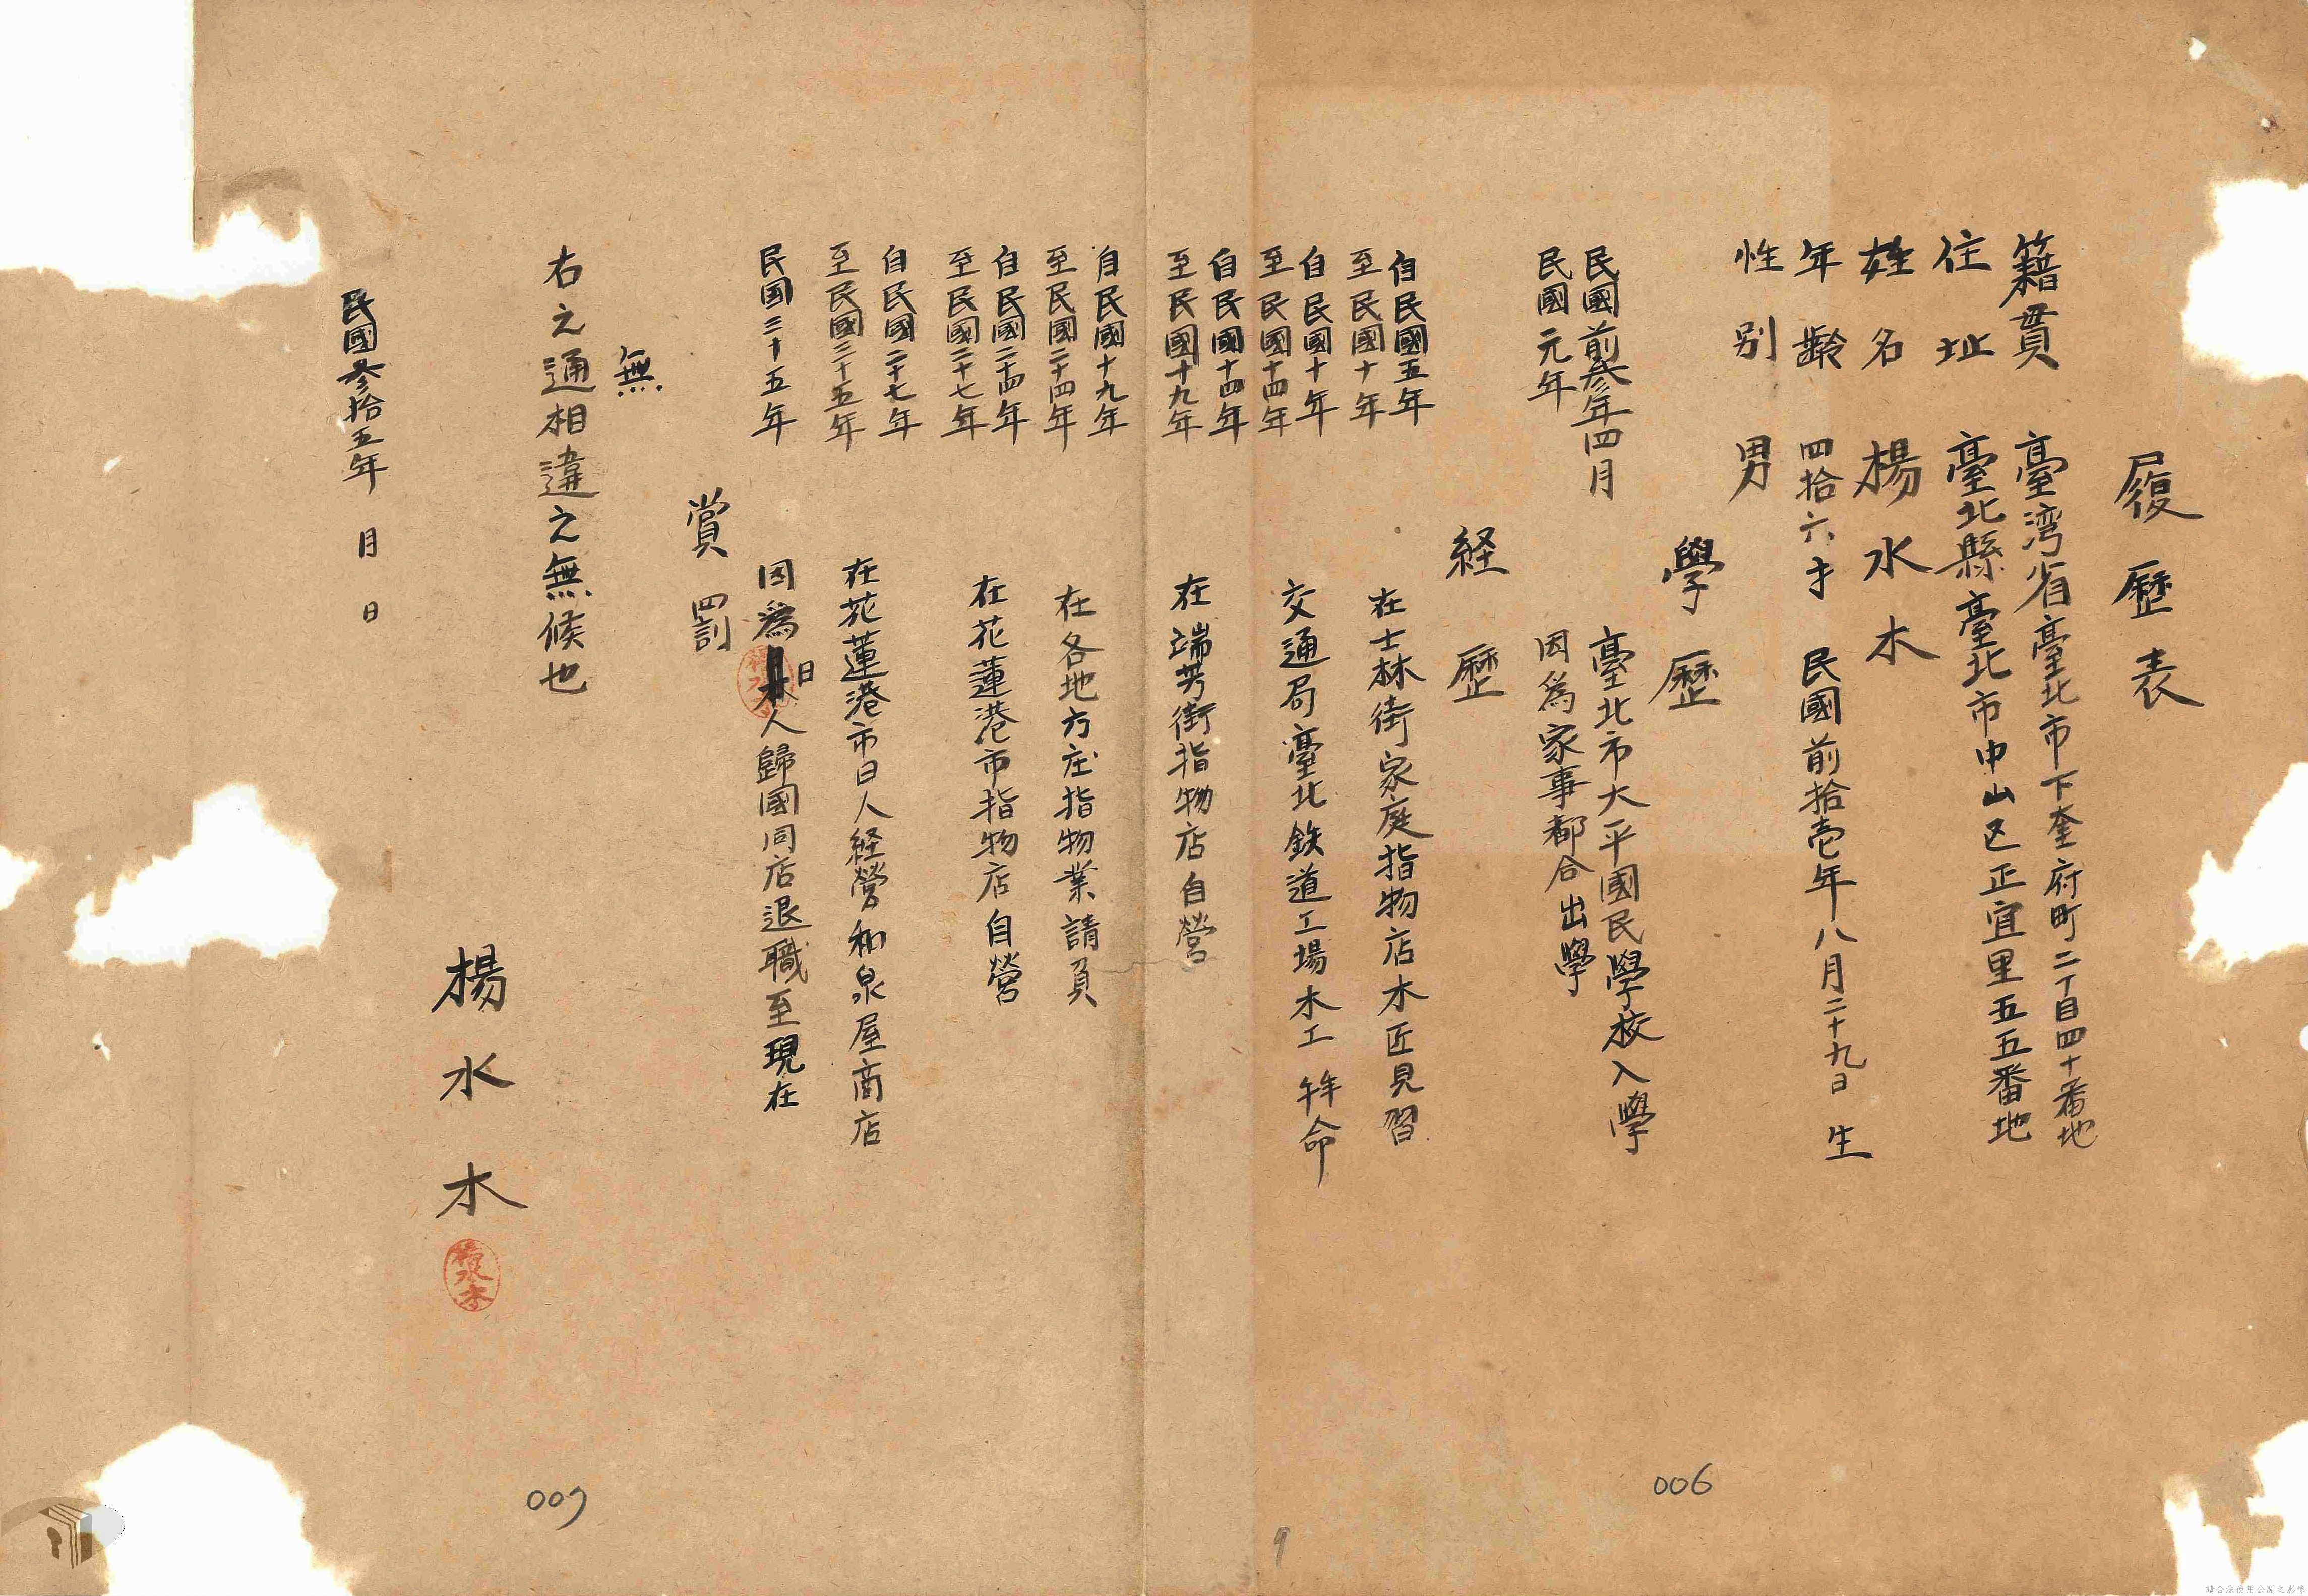 履歷表
籍貫 臺湾省臺北市下奎府町二丁目四十番地
住址 臺北縣臺北市中山区正宜里五五番地
姓名 楊水木
年齡 四拾六才 民國前拾壱年八月二十九日生
性別 男
學歷
民國前參年四月 臺北市大平國民學校入學
民國元年 因為家事都合出學
経歷
自民國五年
至民國十年 在士林街家庭指物店木匠見習
自民國十年
至民國十四年 交通局臺北鉄道工場木工 命
自民國十四年
至民國十九年 在瑞芳街指物店自營
自民國十九年
至民國二十四年 在各地方庄指物業請負
自民國二十四年
至民國二十七年 在花蓮港市指物店自營
自民國二十七年
至民國三十五年 在花蓮港市日人経營和泉屋商店
民国三十五年 因為日人歸國同店退職至現在
賞罰
無
右之通相違之無候也
民國參拾五年 月 日
楊水木
楊水木
006
007
9
請合法使用公開之影像